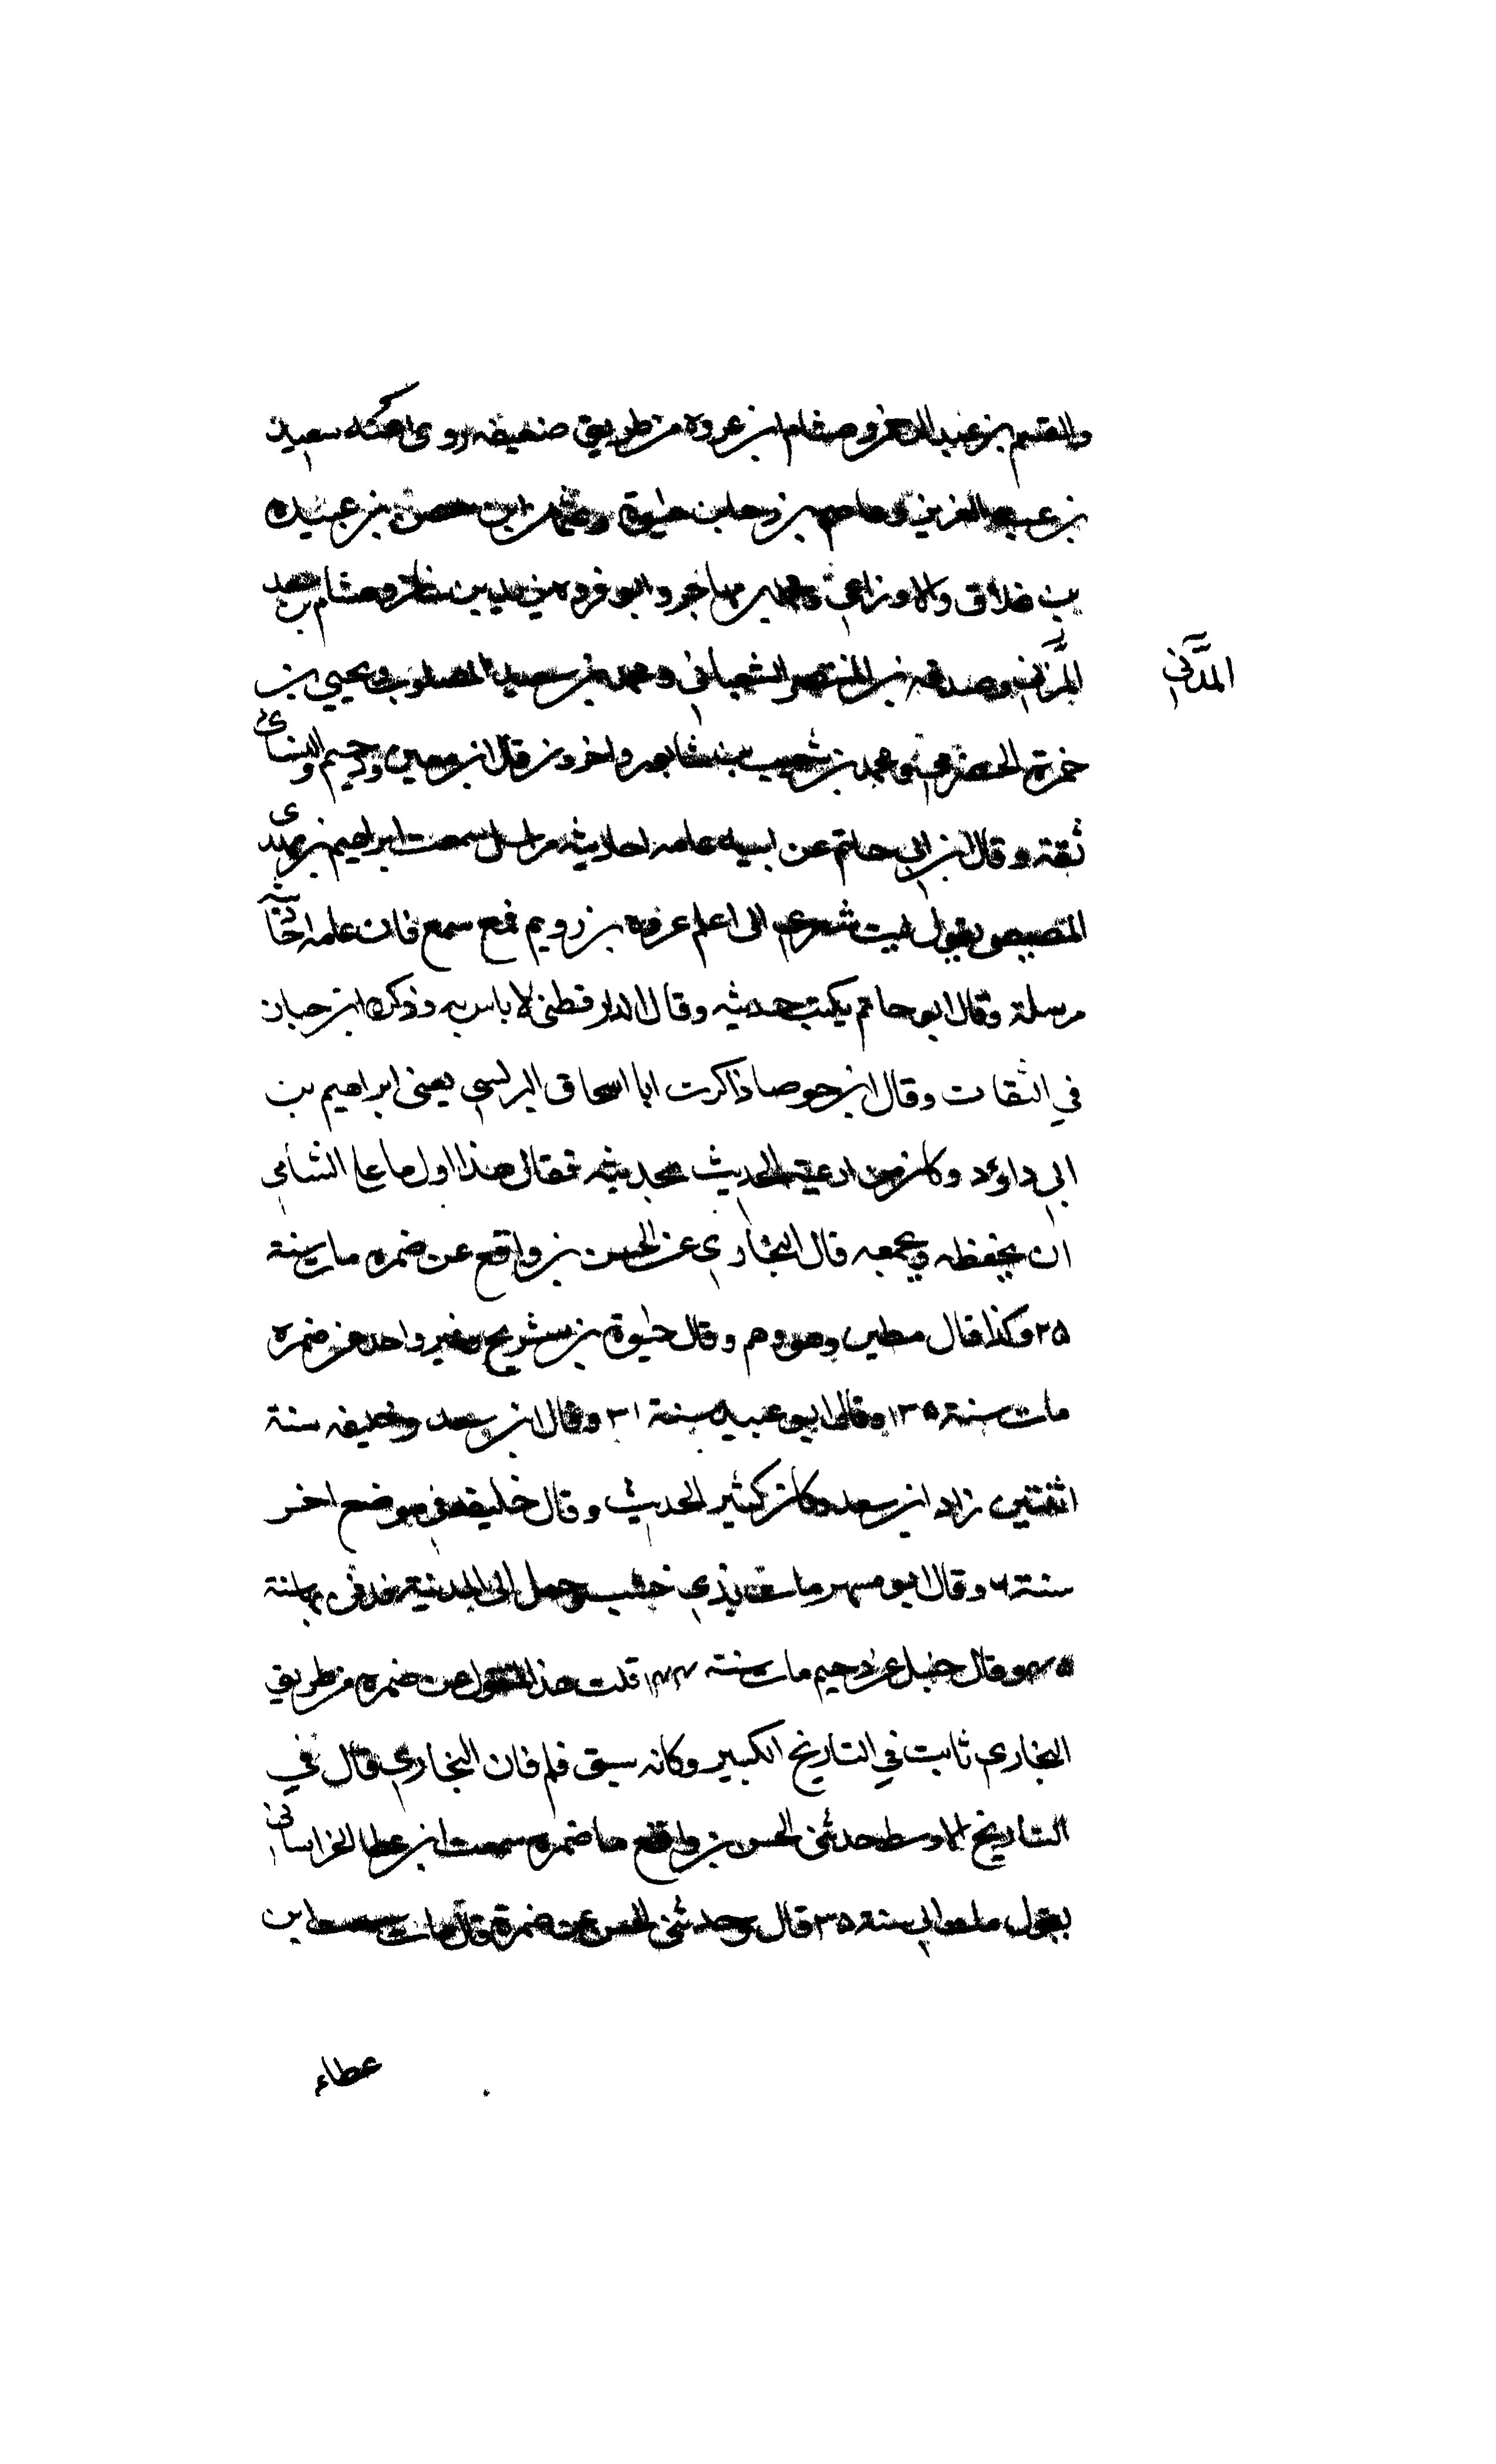 والقسم بن عبد الرحمن وهشام ابن عروة من طريق ضعيفه روى عنه سعيد
بن عبد العزيز وعاصم بن رجاء بن حيوة وعثمان بن حصن بن عبيدة
بن علاق والاوزاعي ومحمد بن مهاجر وابو فروه يزيد بن سنان وهشام بن سعد
المدني وصدقه بن المنتصر الشعباني ومحمد بن سعيد المصلوب ويحيى بن
المدني
حمزة الحضرمي ومحمد بن شعيب بن شابور واخرون قال ابن معين ودحيم والنسائي
ثقة وقال ابن ابي حاتم عن ابيه عامه احاديثه مراسل سمعت ابراهيم بن مهدى
المصيصي يقول ليت شعري اني اعلم عروه بن رويم ممن سمع فان عامه احاديثه
مرسلة وقال ابو حاتم يكتب حديثه وقال الدارقطني لا باس به وذكره ابن حبان
في الثقات وقال ابن جوصا ذاكرت ابا اسحاق البرلسي يعني ابراهيم بن
ابي داوٗد وكان من ادعية الحديث بحديثه فقال هذا اول ما على الشامي
ان يحفظه ويجمعه قال البخاري عن الحسن بن واقع عن ضمره مات سنة
٢٥ وكذا قال مطين وهو وهم وقال حيوة بن شريح وغير واحد عن ضمرة
مات سنة ١٣٥ وقال ابو عبيد سنة ٣١ وقال ابن سعد وخليفه سنة
اثنتين زاد ابن سعد وكان كثير الحديث وقال خليفه في موضع اخر
سنة ٤ وقال ابو مسهر مات بذي خشب وحمل الى المدينة فدفن بها سنة
٣٥ وقال حنبل عن دحيم مات سنة قلت هذا القول عن ضمره من طريق
البخاري ثابت في التاريخ الكبير وكانه سبق قلم فان البخاري قال في
التاريخ الاوسط حدثني الحسن بن واقع ثنا ضمره سمعت ابن عطا الخراساني
يقول مات ابي سنة ٣٥ قال وحدثني الحسن عن ضمرة قال مات سمعت ابن
عطاء